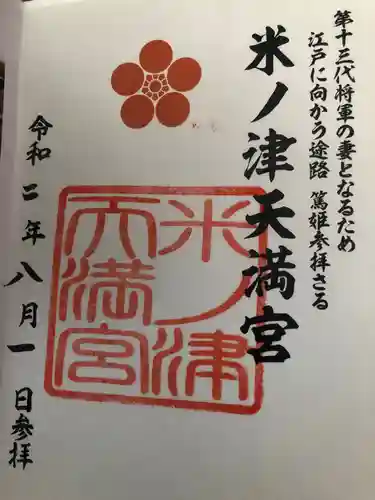 第十三代将軍の妻となるため
江戸に向かう途路 篤姫参拝さる
米ノ津天満宮
米ノ津
天満宮
令和二年八月一日参拝